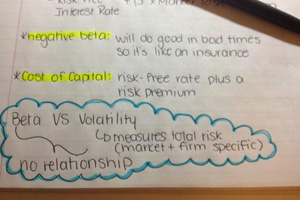 Interest Rate
*negative beta: will do good in bad times
so it's like an insurance
*Cost of Capital: risk-free rate plus a
risk premium
Beta VS Volatility
↳measures total risk
(market + firm specific)
no relationship